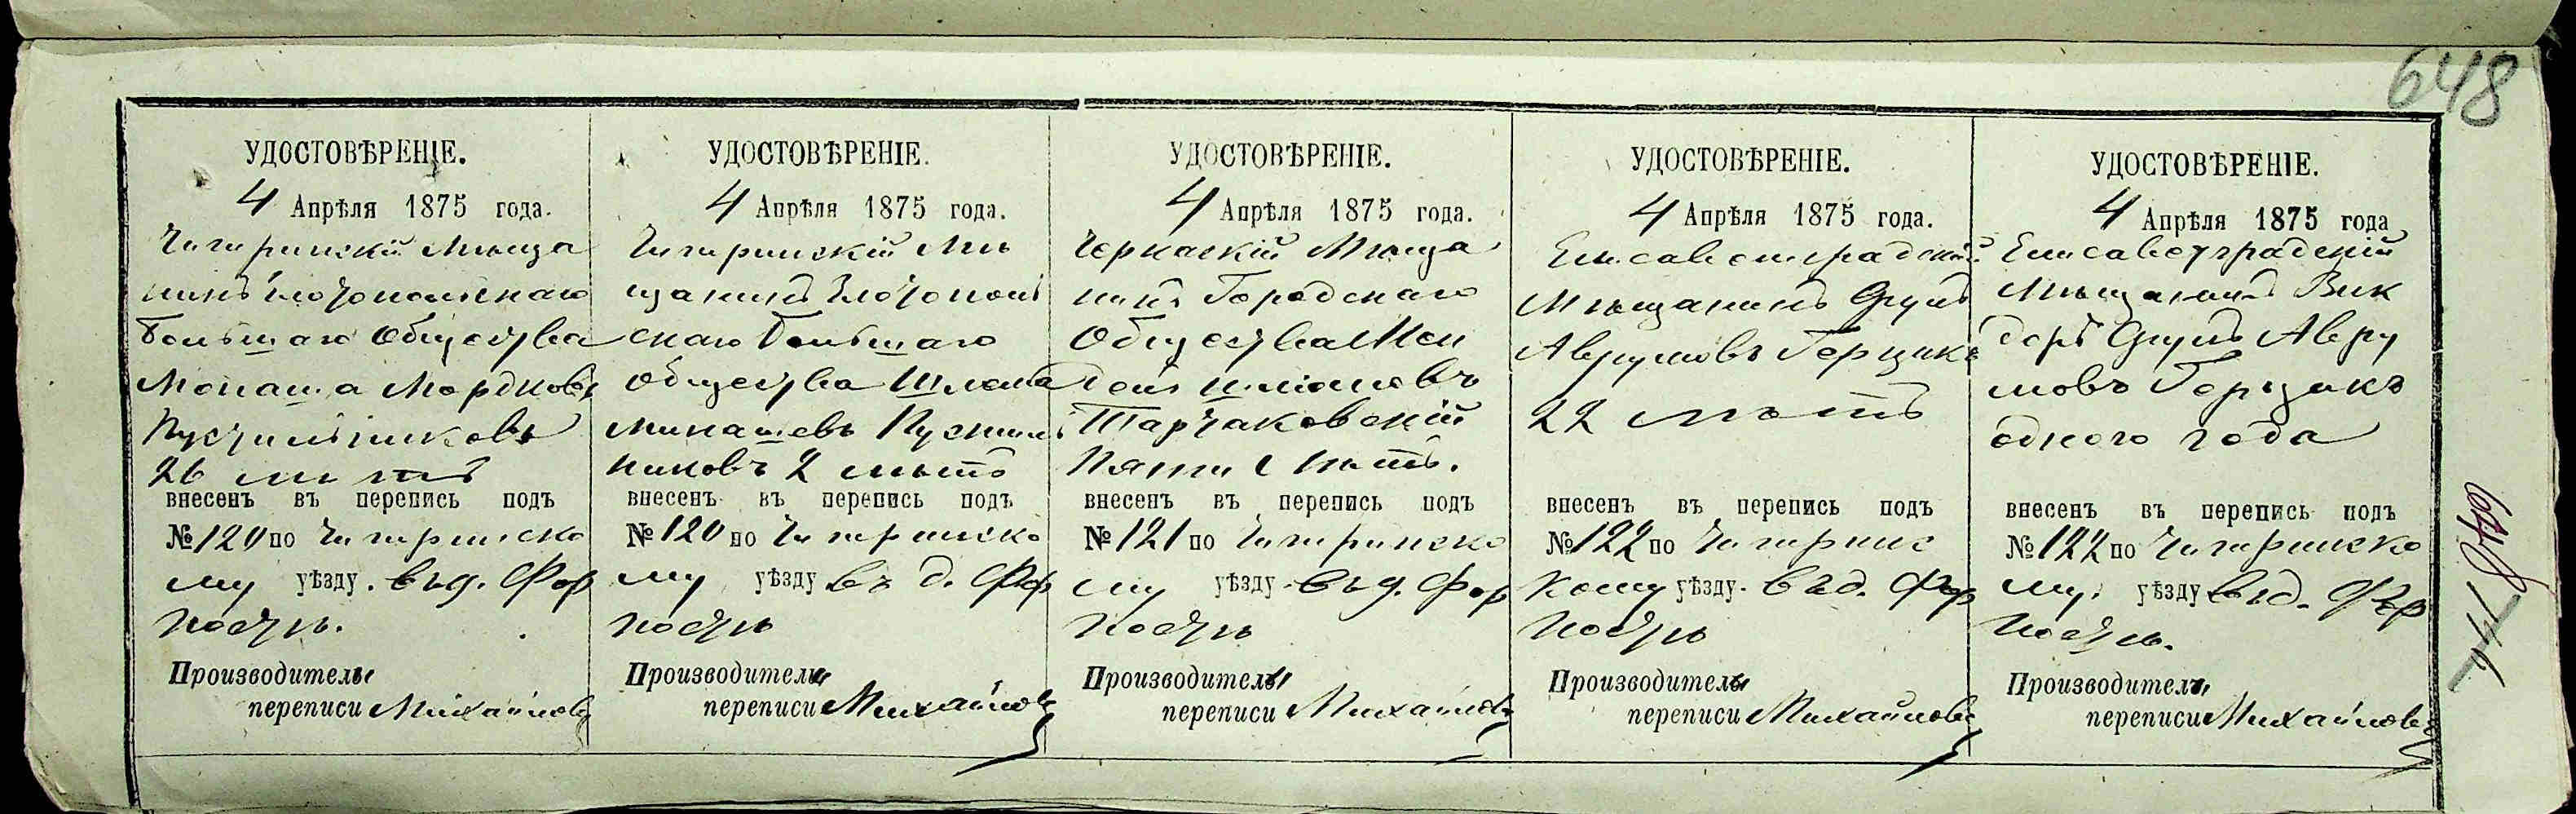 648
УДОСТОВѢРЕНІЕ.
4 Апрѣля 1875 года.
Чигиринскій Мѣща
нинъ Злотопольскаго
Большаго Общества
Монаша Мордковъ
Пустильниковъ
26 лѣтъ
внесенъ въ перепись подъ
№ 120 по Чигиринско
му уѣзду. въ д. Фор
постѣ.
Производитель
переписи Михайловъ
УДОСТОВѢРЕНІЕ.
4 Апрѣля 1875 года.
Чигиринскій Мѣ
щанинъ Злотополь
скаго Большаго
Общества Шлема
Минашевъ Пустиль
никовъ 2 лѣтъ
внесенъ въ перепись подъ
№ 120 по Чигиринско
му уѣзду въ д. Фор
постѣ
Производитель
переписи Михайловъ
УДОСТОВѢРЕНІЕ.
4 Апрѣля 1875 года.
Черкаскій Мѣща
нинъ Городскаго
Общества Мен
дель
Тарчаковскій
Пяти лѣтъ.
внесенъ въ перепись подъ
№ 121 по Чигиринско
му уѣзду въ д. Фор
постѣ
Производитель
переписи Михайловъ
УДОСТОВѢРЕНІЕ.
4 Апрѣля 1875 года.
Елисаветградскій
Мѣщанинъ
Аврумовъ Герцикъ
22 лѣтъ
внесенъ въ перепись подъ
№ 122 по Чигиринс
кому уѣзду. въ д. Фор
постѣ
Производитель
переписи Михайловъ
УДОСТОВѢРЕНІЕ.
4 Апрѣля 1875 года
Елисаветградскій
Мѣщанинъ Вик
доръ Авру
мовъ Герцикъ
одного года
внесенъ въ перепись подъ
№ 122 по Чигиринско
му уѣзду въ д. Фор
постѣ.
Производитель
переписи Михайловъ